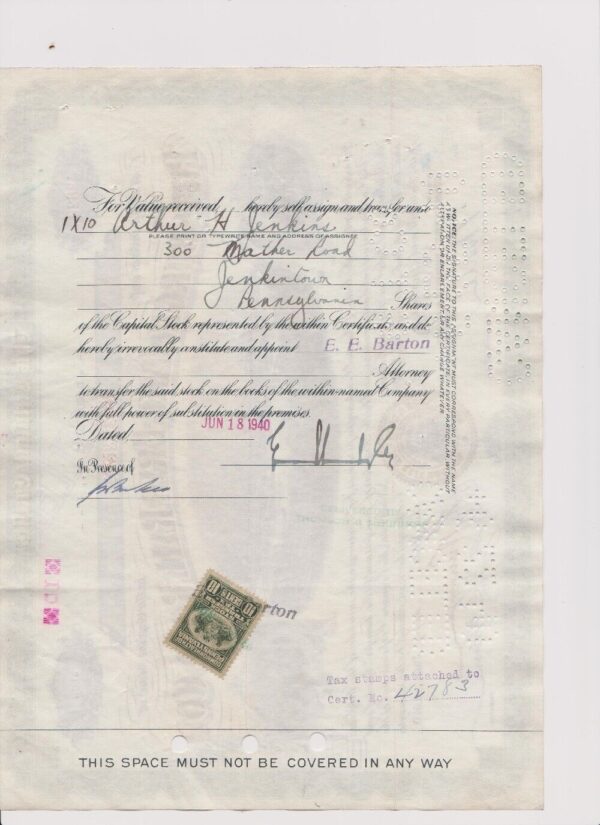 For Value received, hereby sell, assign and transfer unto
1X10 Arthur H Jenkins
PLEASE PRINT OR TYPEWRITE NAME AND ADDRESS OF ASSIGNEE
300 Mather Road
Jenkintown
Pennsylvania Shares
of the Capital Stock represented by the within Certificate and do
hereby irrevocably constitute and appoint E. E. Barton
Attorney
to transfer the said stock on the books of the within-named Company
with full power of substitution in the premises.
Dated JUN 18 1940
In Presence of
NOTICE: THE SIGNATURE TO THIS ASSIGNMENT MUST CORRESPOND WITH THE NAME
AS WRITTEN UPON THE FACE OF THE CERTIFICATE, IN EVERY PARTICULAR, WITHOUT
ALTERATION OR ENLARGEMENT, OR ANY CHANGE WHATEVER.
rton
10 CENTS 10
Tax stamps attached to
Cert. No. 42783
THIS SPACE MUST NOT BE COVERED IN ANY WAY